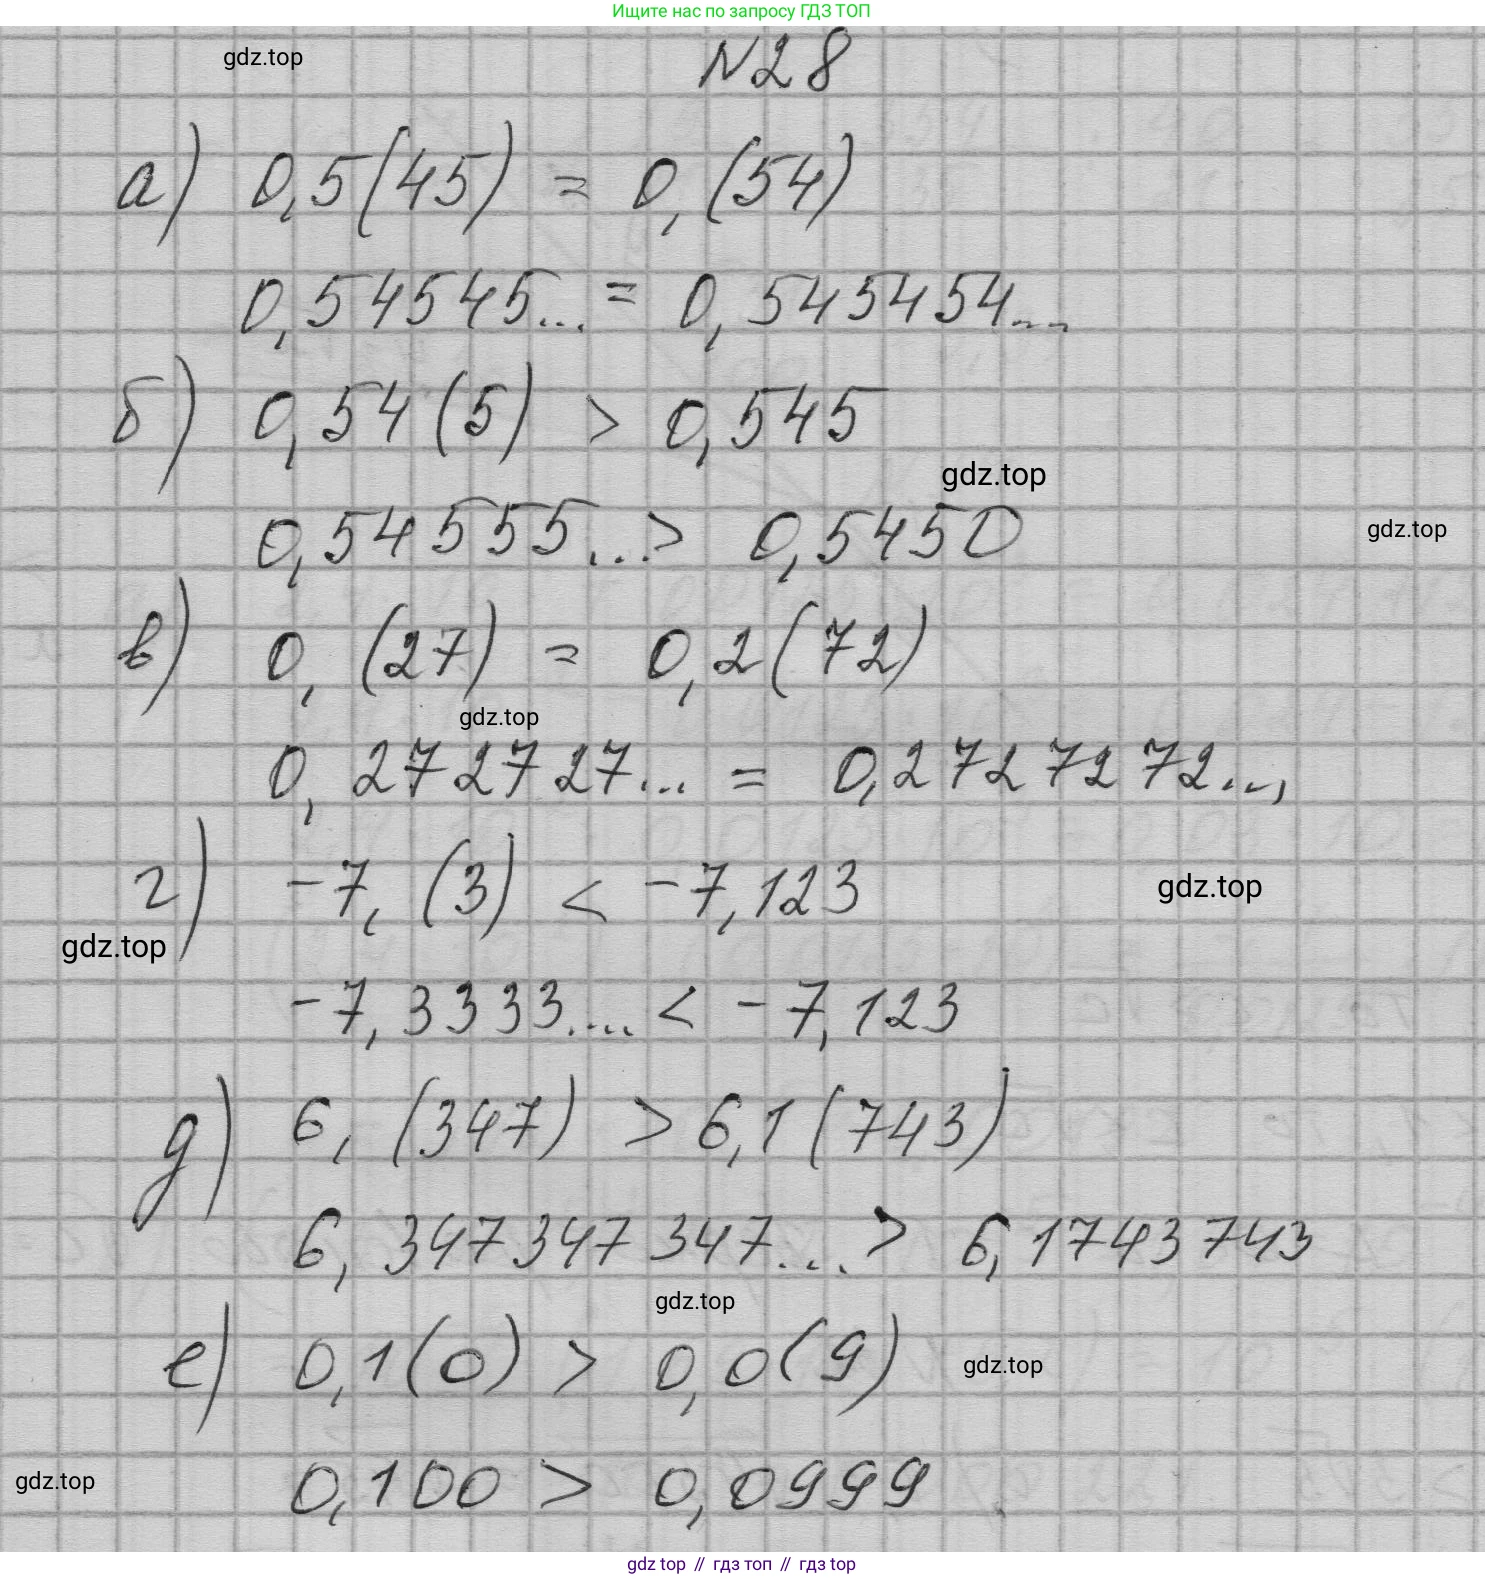 Ищите нас по запросу ГДЗ ТОП
gdz.top
N28
а) 0,5(45) = 0,(54)
0,54545... = 0,545454...
б) 0,54(5) > 0,545
gdz.top
0,54555...> 0,5450
gdz.top
в) 0,(27) = 0,2(72)
gdz.top
0,272727... = 0,2727272...,
г) -7,(3) < -7,123
gdz.top
gdz.top
-7,3333.... < -7,123
д) 6,(347) > 6,1(743)
6,347347347... > 6,1743743
gdz.top
е) 0,1(0) > 0,0(9)
gdz.top
gdz.top
0,100 > 0,0999
gdz top // гдз топ // гдз top